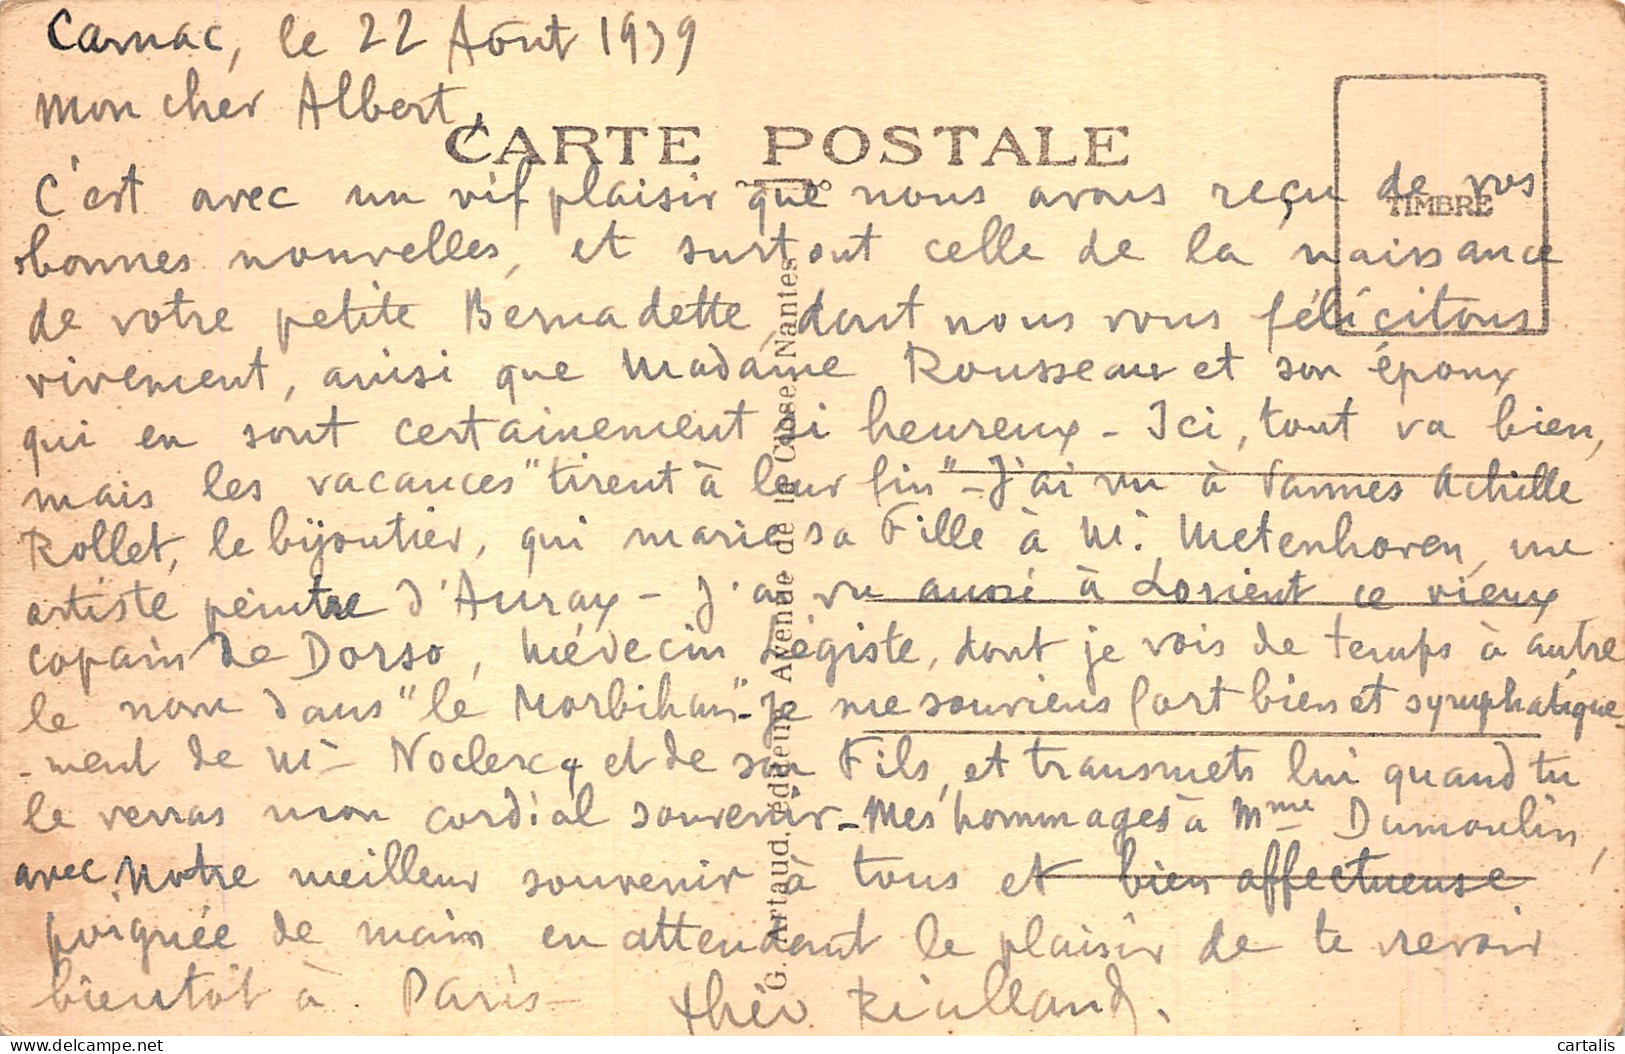 Carnac, le 22 Août 1939
Mon cher Albert,
CARTE POSTALE
TIMBRE
C'est avec un vif plaisir que nous avons reçu de vos
bonnes nouvelles, et surtout celle de la naissance
de votre petite Bernadette, dont nous vous félicitons
vivement, ainsi que Madame Rousseau et son époux
qui en sont certainement si heureux - Ici, tout va bien,
mais les vacances "tirent à leur fin" - J'ai vu à Vannes Achille
Rollet, le bijoutier, qui marie sa Fille à M. Metenhoven, un
artiste peintre d'Auray - J'ai vu aussi à Lorient ce vieux
copain de Dorso, Médecin Légiste, dont je vois de temps à autre
le nom dans "le Morbihan" - Je me souviens fort bien et symphatique-
-ment de Mr Noclercq et de son Fils, et transmets lui quand tu
le verras mon cordial souvenir - Mes hommages à Mme Dumoulin,
avec notre meilleur souvenir à tous et bien affectueuse
poignée de main en attendant le plaisir de te revoir
bientôt à Paris -
Théo Rialland.
G. Artaud. éditeur, Avenue de la Close, Nantes
cartalis